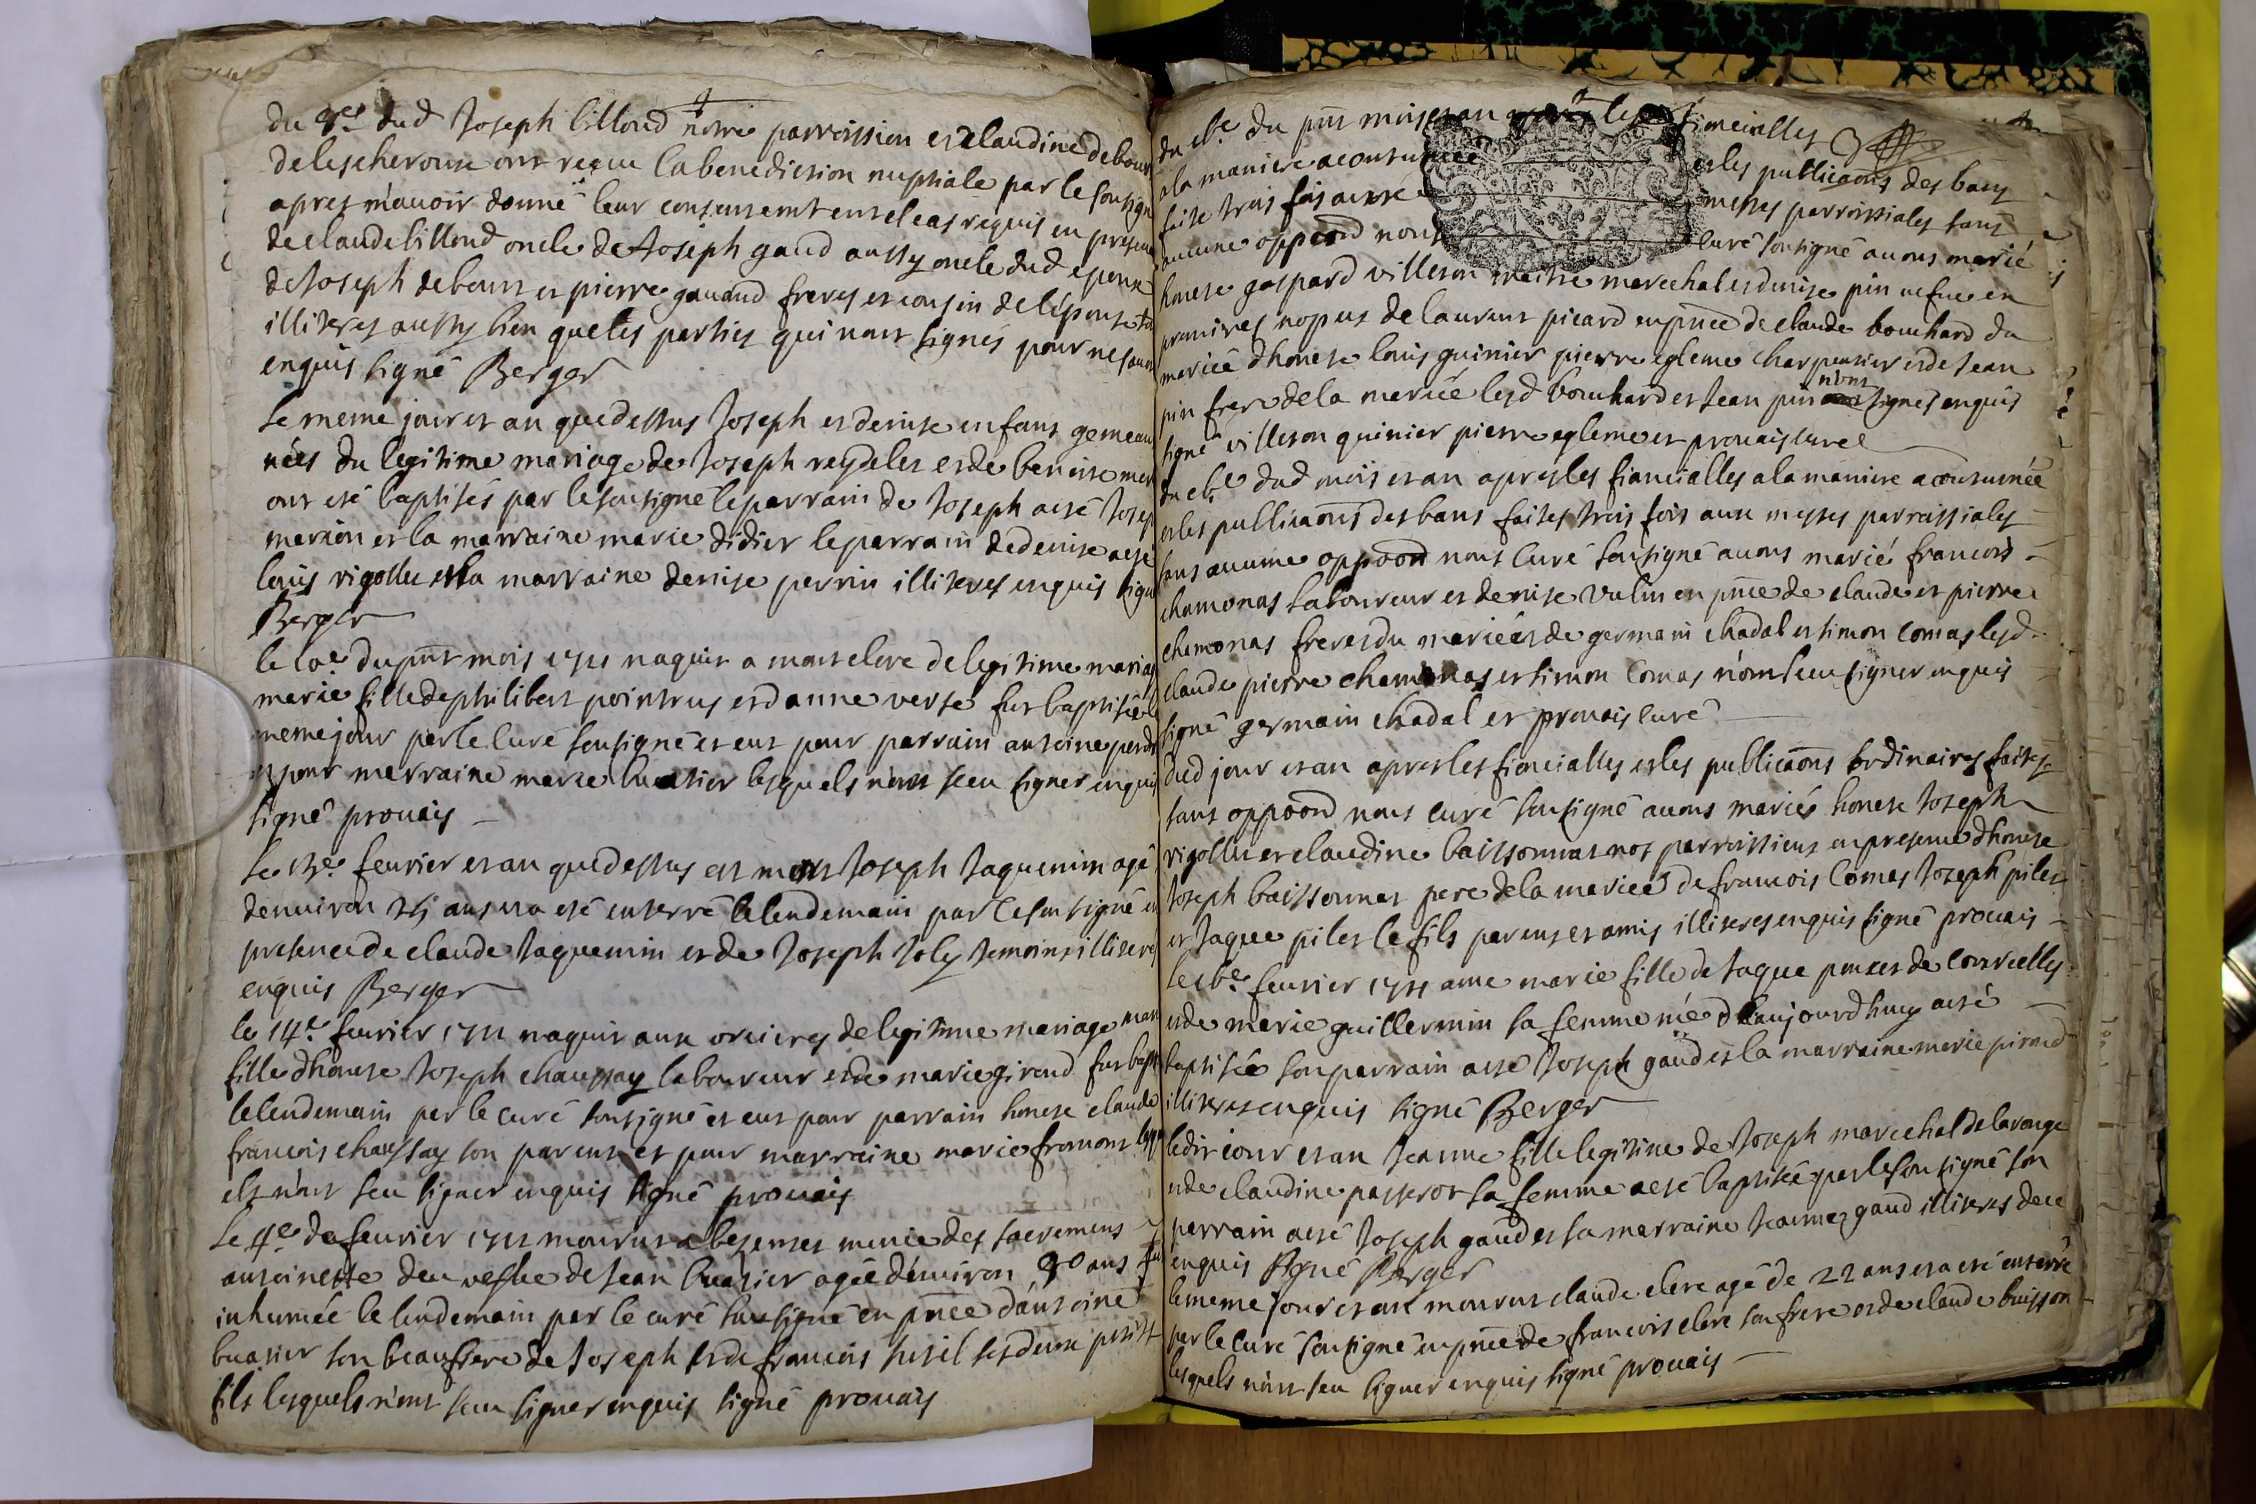 du 8e dud Joseph billond notre parroissien et claudine debourt
delescherouse ont reçeu la benediction nuptiale par le sousigné
apres m'auoir donné leur consentemt en tel cas requis en presence
de claude billond oncle de Joseph gaud aussy oncle dud epoux
de Joseph debourt et pierre gauand freres et cousin de l'épouse
illiteres aussy bien que les parties qui n'ont signés pour ne sauoir
enquis signé Berger
Le meme jour et an que dessus Joseph et denise enfans gemeaux
néés du legitime mariage de Joseph reydelet et de benoise
ont eté baptisés par le sousigné le parrain de Joseph a eté Joseph
merion et la marraine marie didier le parrain de denise a esté
louis rigollet et la marraine denise perrin illiteres enquis signé
Berger
le 10e du pnt mois 1711 naquit a montclere de legitime mariage
marie fille de philibert pointrus et d'anne verse fut baptisée
meme jour par le curé sousigné et eut pour parrain antoine
et pour marraine marie buatier lesquels n'ont sceu signer enquis
signé prouais
Le 13e feurier et an que dessus est mort Joseph Jaquemin agé
denuiron 25 ans et a eté enterré le lendemain par le sousigné en
presence de claude Jaquemin et de Joseph Joly temoins illiteres
enquis Berger
le 14e feurier 1711 naquit aux orcieres de legitime mariage
fille d'honeste Joseph chaussay laboureur et de marie giroud fut
le lendemain par le curé sousigné et eut pour parrain honese claude
francois chaussay son parent et pour marraine marie fromont
els n'ont seu signer enquis signé prouais
Le 4e de feurier 1711 mourut a besentes munie des sacremens
antoinette deu vefue de Jean buatier agée d'enuiron 80 ans
inhumée le lendemain par le curé sousigné en pnce d'antoine
buatier son beaufrere de Joseph et de francois turil ses deux petits
fils lesquels n'ont sceu signer enquis signé prouais
du 16e du pnt mois et an fiancialles
a la maniere acoutumée et les publicaons des bans
faite trois fois messes parroissiales sans
aucune oppoond nous curé sousigné auons marié
honese gaspard villeton maitre marechal et denise pin uefue en
premires nopces de laurent picard en pnce de claude bouchard du
mariée dhonese louis guinier pierre egleme charpentier et de Jean
pin frere de la mariée lesd bouchard et Jean pin n'ont signés enquis
signé villeton guinier pierre egleme et prouais curé
du 16e dud mois et an apres les fiancialles a la maniere acoutumée
et les publicaons des bans faites trois fois aux messes parroissiales
sans aucune oppoond nous curé sousigné auons marié francois
chamonas laboureur et denise vulin en pnce de claude et pierre
chamonas freres du mariéé et de germain chadal et simon comas lesd
claude pierre chamonas et simon Comas n'ont sceu signer enquis
signé germain chadal et prouais curé
dud jour et an apres les fiancialles et les publicaons ordinaires faites
sans oppoond nous curé sousigné auons mariés honese Joseph
rigollet et claudine baissonnat nos parroissiens en presence dhonese
Joseph baissonnat pere de la mariée de francois Comas Joseph pilet
et Jaque pilet le fils parens et amis illiteres enquis signé prouais
Le 16e feurier 1711 anne marie fille de Jaque poncet de courcelles
et de marie guillermin sa femme née d'aujourdhuy a eté
baptisée son parrain a esté Joseph gaud et la marraine marie piroud
illiteres enquis signé Berger
ledit iour et an Jeanne fille legitime de Joseph marechal de la range
et de claudine passerot sa femme a eté baptisée par le sousigné son
parrain a eté Joseph gaud et sa marraine Jeanne gaud illiteres de ce
enquis signé Berger
le meme jour et an mourut claude clere agé de 22 ans et a eté enterré
par le curé sousigné en pnce de francois clere son frere et de claude buisson
lesquels n'ont sceu signer enquis signé prouais